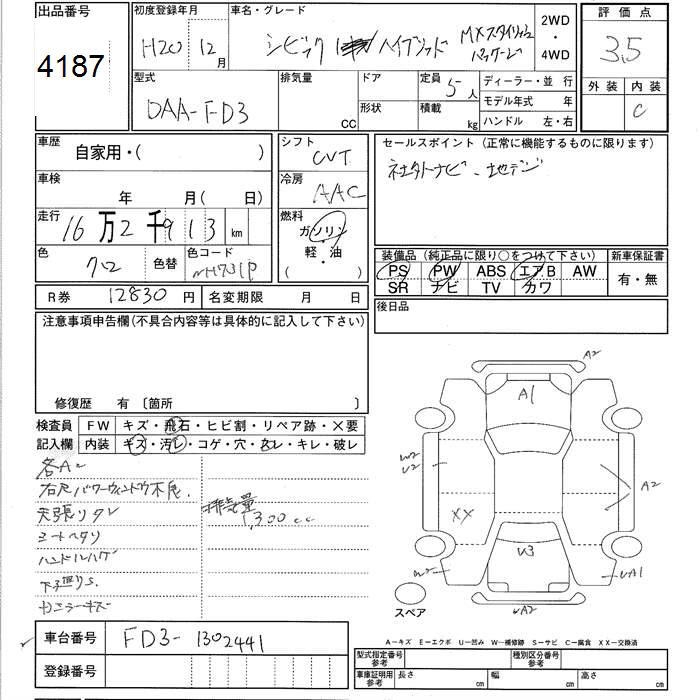 出品番号
4187
初度登録年月
H20 12月
車名・グレード
シビック ハイブリッド MXスタイリッシュ
パッケージ
2WD
・
4WD
評価点
3.5
型式
DAA-FD3
排気量
CC
ドア
形状
定員 5人
積載 kg
ディーラー・並行
モデル年式 年
ハンドル 左・右
外装 内装
C
車歴
自家用・( )
車検
年 月( 日)
走行
16万2千913 km
色
クロ
色替
色コード
NH731P
シフト
CVT
冷房
AAC
燃料
ガソリン
軽・油
( )
セールスポイント (正常に機能するものに限ります)
社外ナビ・地デジ
装備品 (純正品に限り○をつけて下さい)
PS PW ABS エアB AW
SR ナビ TV カワ
新車保証書
有・無
R券 12830円
名変期限 月 日
後日品
注意事項申告欄(不具合内容等は具体的に記入して下さい)
修復歴 有 〔箇所 〕
検査員
記入欄
FW キズ・飛石・ヒビ割・リペア跡・X要
内装 キズ・汚レ・コゲ・穴・スレ・キレ・破レ
各A2
右Rパワーウィンドウ不良.
天張りタレ
シートヘタリ
ハンドルハゲ
下廻りS.
排気量
1,300cc
A2
A1
W2
U2
A2
XX
U3
W2
UA1
UA2
スペア
A-キズ E-エクボ U-凹み W-補修跡 S-サビ C-腐食 XX-交換済
車台番号 FD3-1302441
登録番号
型式指定番号
参考
種別区分番号
参考
車庫証明用
参考
長さ cm
幅 cm
高さ cm